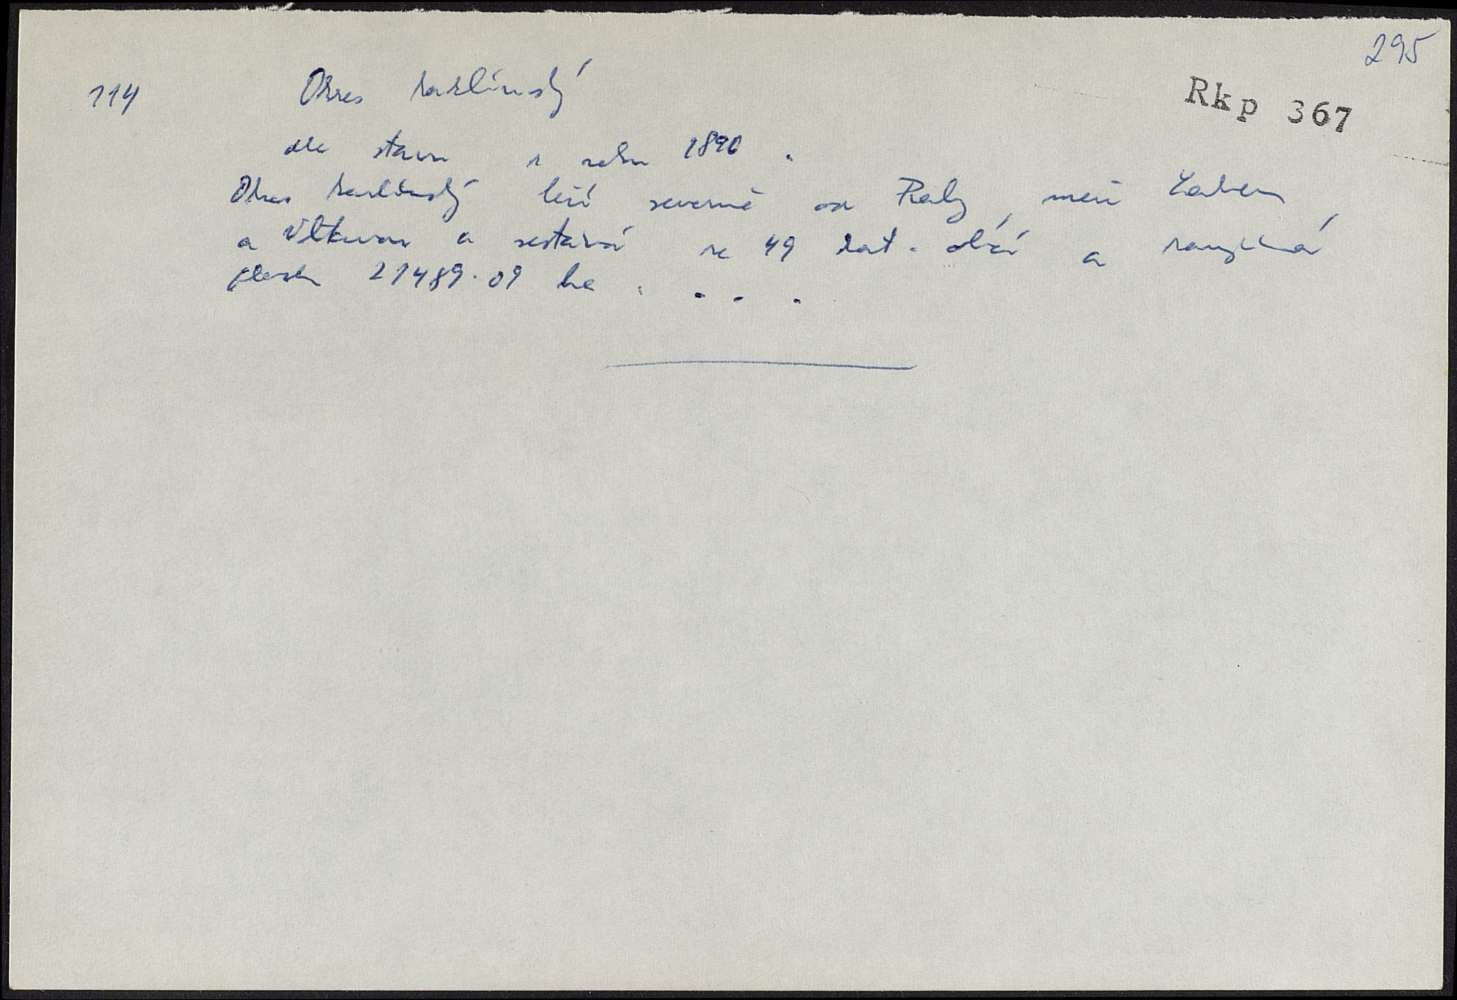 295
Rkp 367
114 Okres karlínský
dle stavu z roku 1890.
Okres karlínský leží severně od Prahy, mezi Labem
a Vltavou a sestává ze 49 kat. obcí a zaujímá
plochu 21489.09 ha . . . .